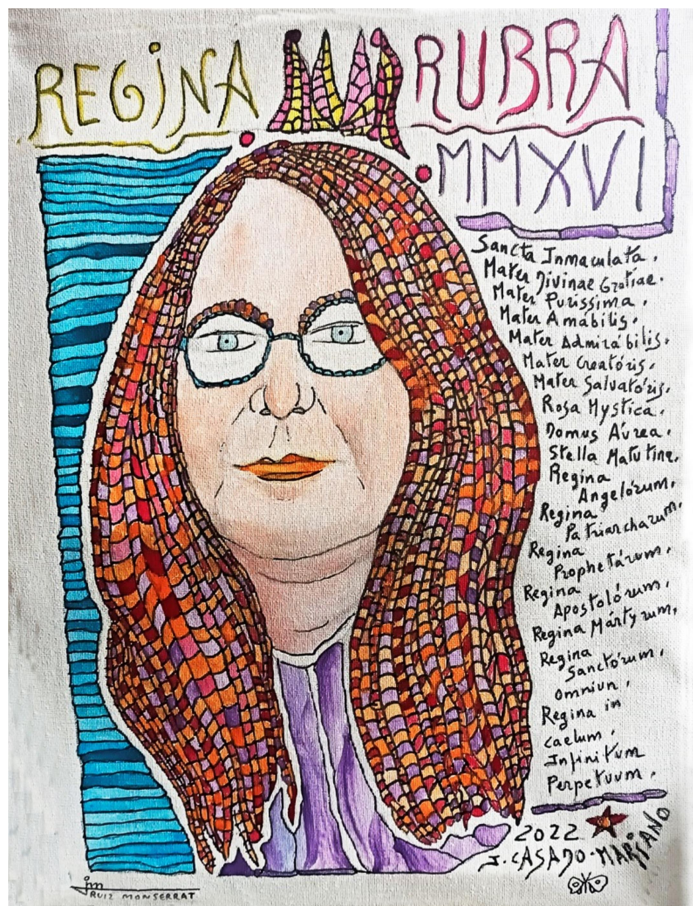 REGINA RUBRA
MMXVI
Sancta Inmaculata.
Mater Divinae Gratiae.
Mater Purissima.
Mater Amábilis.
Mater Admirábilis.
Mater Creatóris.
Mater Salvatóris.
Rosa Mystica.
Domus Áurea.
Stella Matutina.
Regina
Angelórum.
Regina
Patriarcharum.
Regina
Prophetárum.
Regina
Apostolórum.
Regina Mártyrum.
Regina
Sanctórum.
omniun.
Regina in
caelum.
Infinitum
Perpetuum.
2022
J. CASADO-MARIANO
jm
RUIZ MONSERRAT